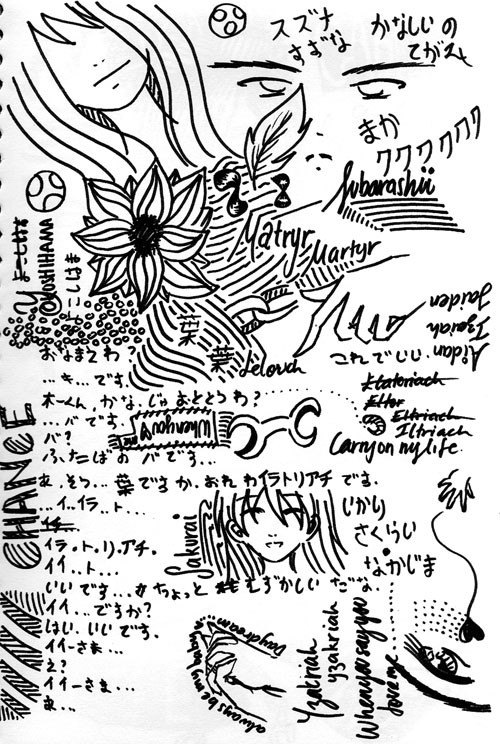 スズナ
すずな
かなしいの
てがみ
まか
ククククククク
Subarashii
Matryr
Martyr
@YOSHIHAMA
よしはま
葉
葉
Delovah
Jaiden
Izaiah
Aidan
おなまえわ?
これでいい.
...き...です.
Eltor
Eltriach
Iltriach
Carry on my life.
...バです.
バ?
ふたばお バです...
あ, そう... 葉ですか. おれわイラトリアチです.
...イ..イラ..ト....
イチ.
イラ.ト.リ.アチ.
イイ..ト...
いいです...
ちょっと
むずかしい だな.
イイ...ですか?
はい. いいです.
イイーさま...
え?
イイーさま...
CHANCE
Sakurai
じかり
さくらい
なかじま
Daydream
always be my baby
Yzakriah
yzakriah
When you say you
love me